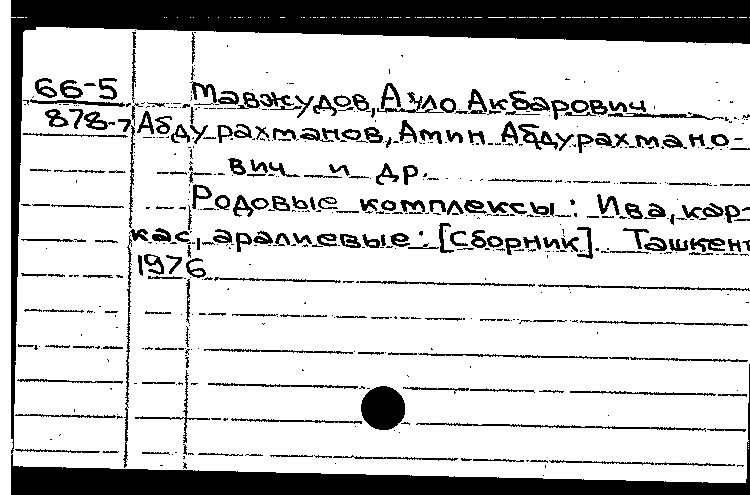 66-5
Мавжудов, Ауло Акбарович
878-7 Абдурахманов, Амин Абдурахмано-
вич и др.
Родовые комплексы: Ива, кар-
кас, аралиевые: [Сборник]. Ташкент
1976